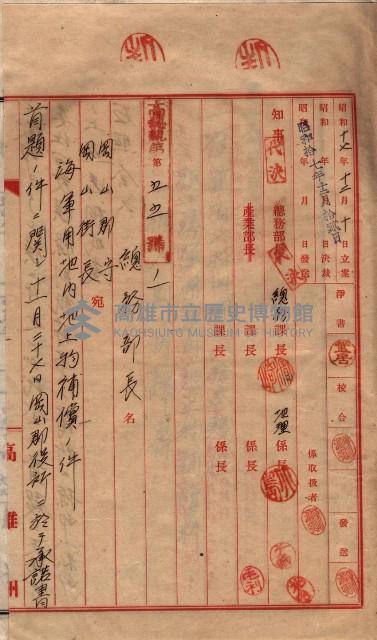 昭和十七年十二月十日立案
昭和 年 月 日決裁
昭和 年 月 日發送
昭和拾七年十二月拾四日
淨書
校合
發送
係取扱者
知事
代決
總務部長
代決
總務課長
地理係長
產業部長
課長
課長
係長
係長
毛利
第五五號ノ一
總務部長名
岡山郡守
岡山街長
宛
海軍用地內地上物補償ノ件
首題ノ件ニ關シ十一月二十七日岡山郡役所ニ於テ承諾書
高雄州
高雄市立歷史博物館
KAOHSIUNG MUSEUM OF HISTORY